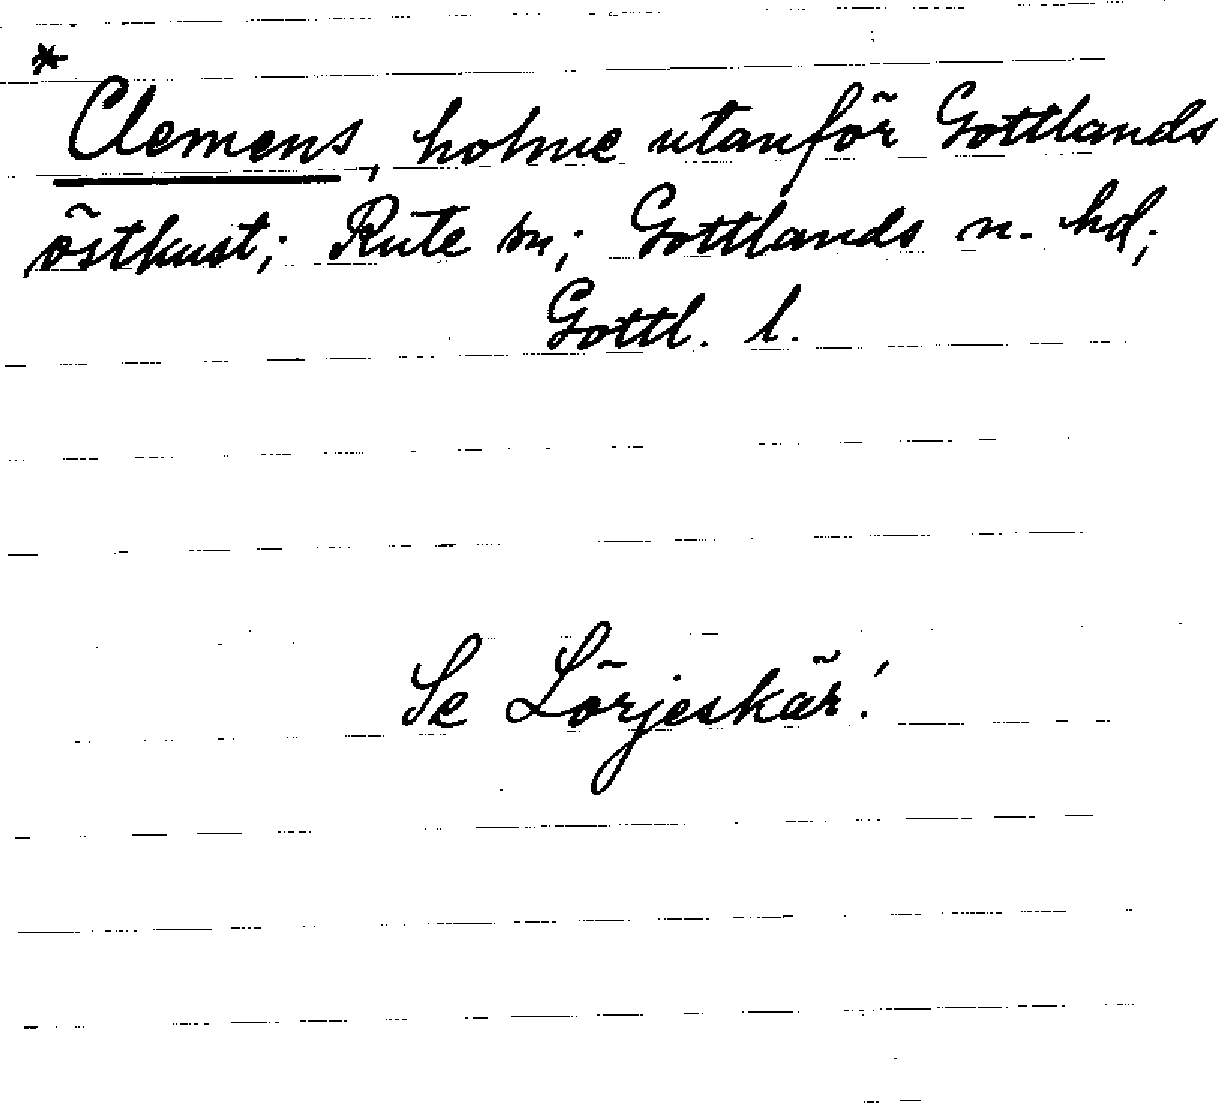 *
Clemens, holme utanför Gottlands
östkust; Rute sn; Gottlands n. hd;
Gottl. l.
Se Lörjeskär!